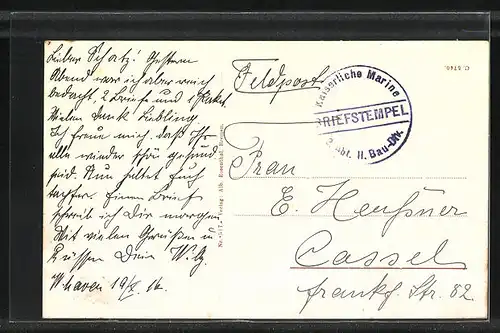 Lieber Schatz! Gestern
Abend war ich aber reich
bedacht, 2 Briefe und 1 Paket.
Vielen Dank Liebling
Ich freue mich, daß Ihr
alle wieder schön gesund
seid. Nun haltet Euch
tapfer. Einen Brief
schreib ich Dir morgen.
Mit vielen Grüßen u
Küssen Dein Willy
W'haven 19/X. 16.
Feldpost
Kaiserliche Marine
BRIEFSTEMPEL
II. Bau-Div.
Frau
E.
Cassel
Frankf. Str. 82
Verlag: Alb. Rosenthal, Bremen.